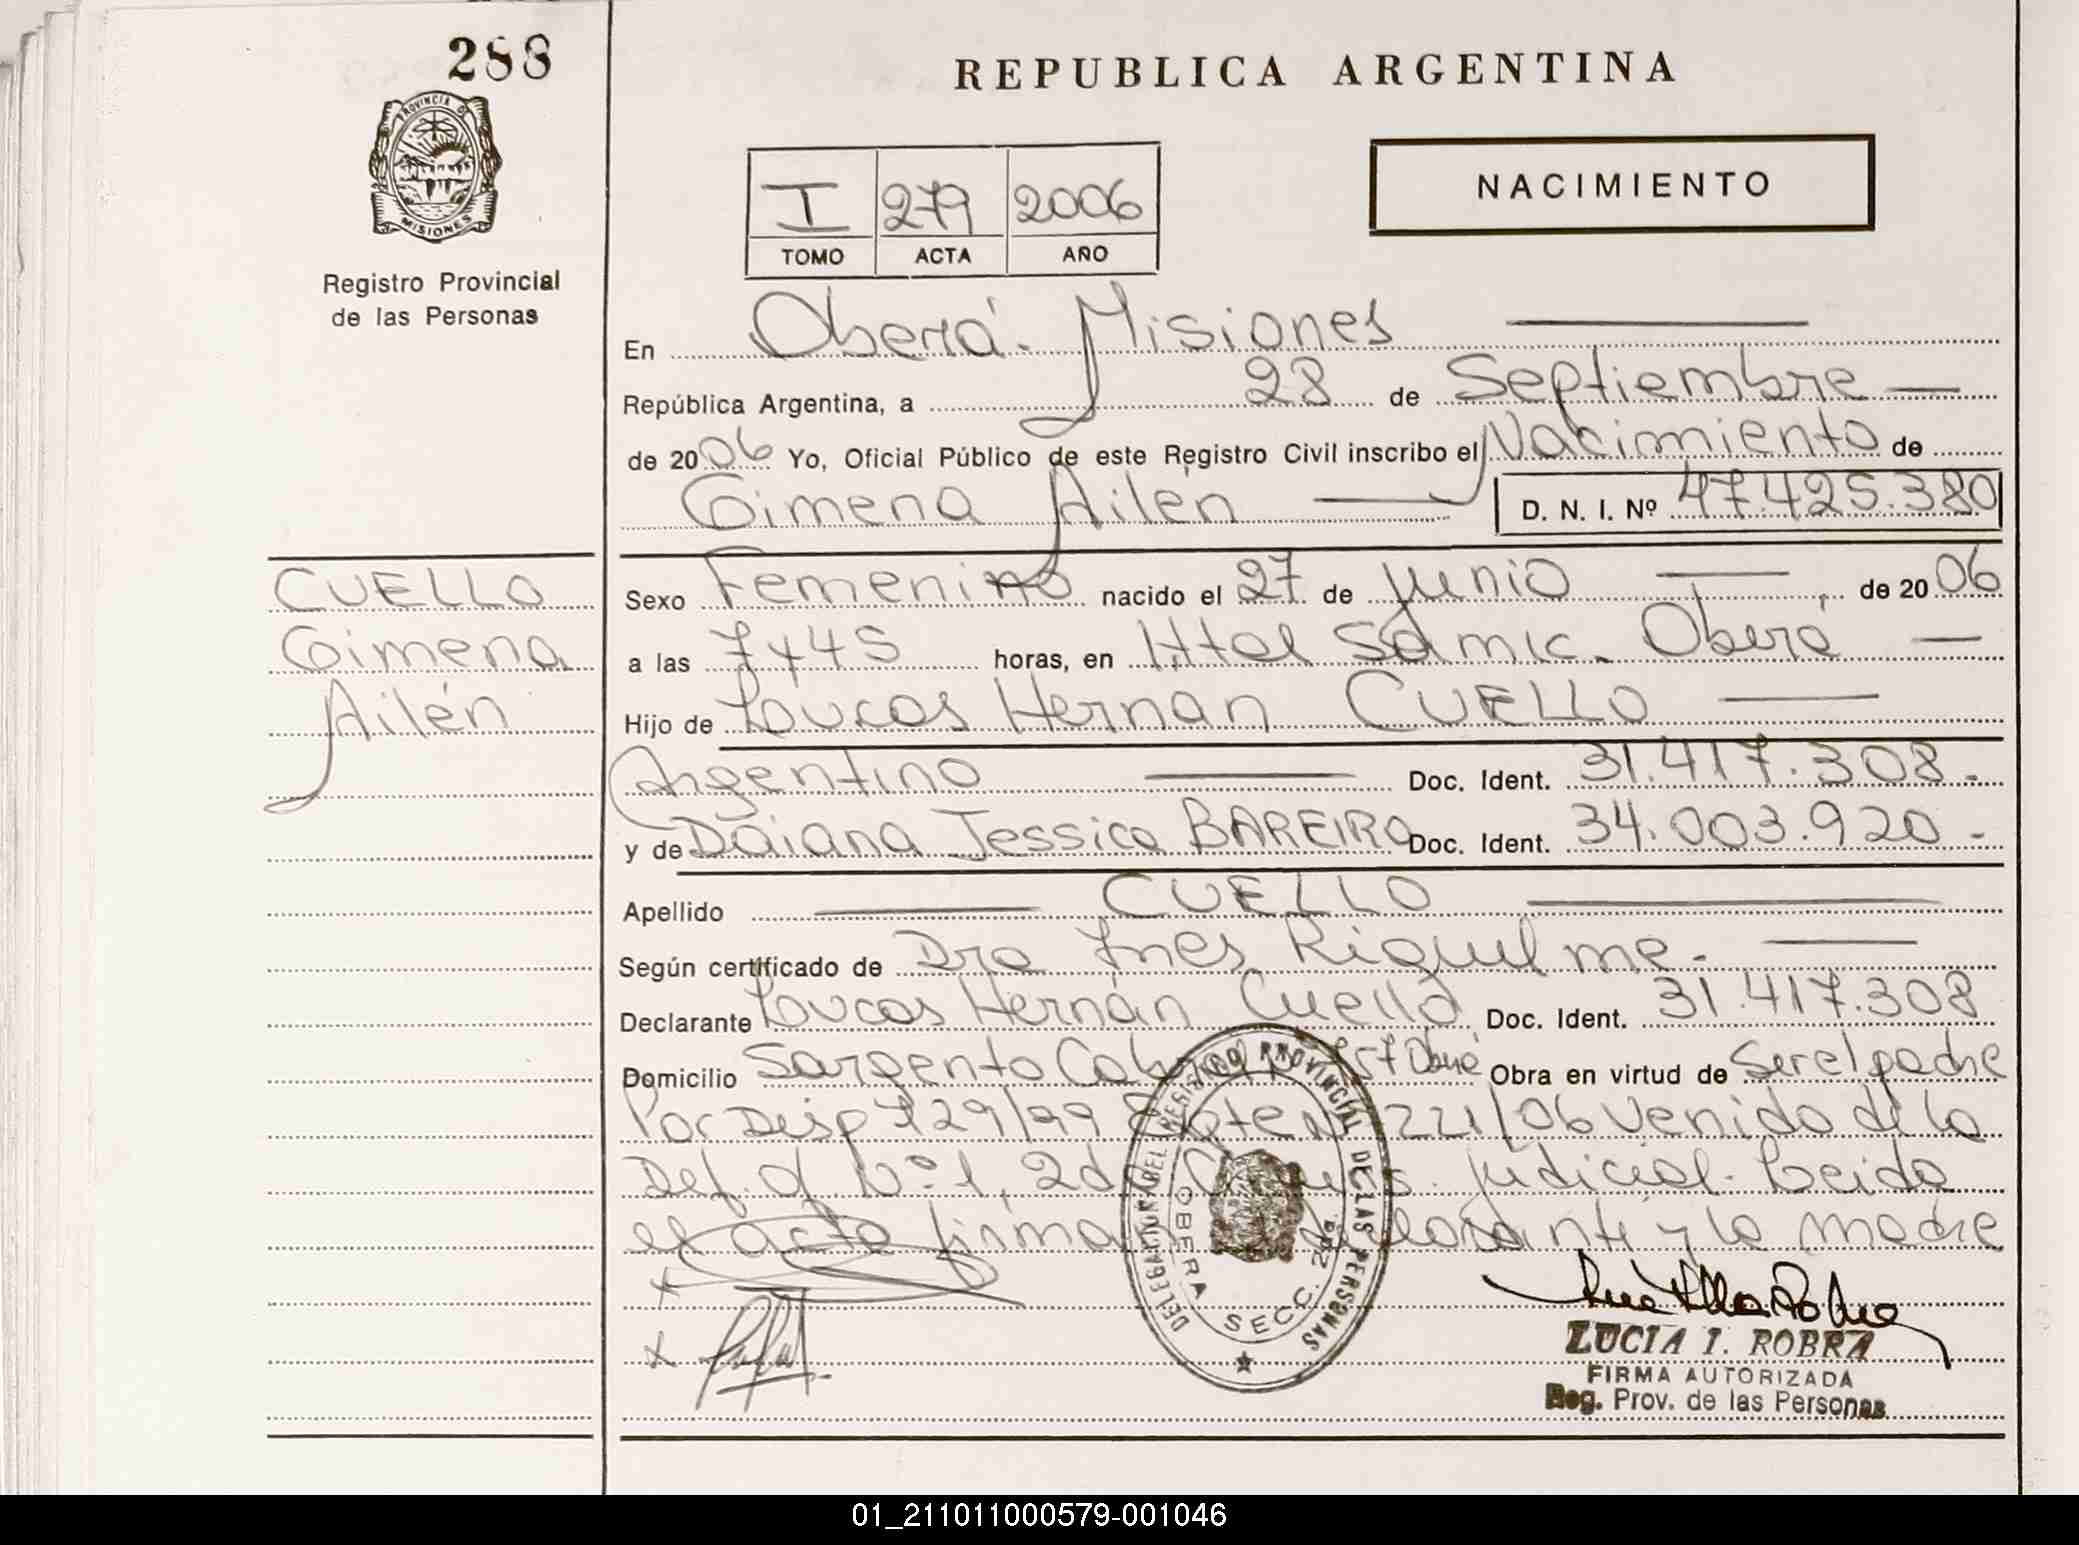 288
PROVINCIA DE
MISIONES
Registro Provincial
de las Personas
REPUBLICA ARGENTINA
I 279 2006
TOMO ACTA AÑO
NACIMIENTO
En Oberá. Misiones
República Argentina, a 28 de Septiembre
de 2006 Yo, Oficial Público de este Registro Civil inscribo el Nacimiento de
Gimena Ailén D. N. I. Nº 47.425.380
CUELLO
Gimena
Ailén
Sexo Femenino nacido el 27 de junio de 2006
a las 7y45 horas, en Htal Samic. Oberá
Hijo de Loucas Hernan CUELLO
Argentino Doc. Ident. 31.417.308.
y de Daiana Jessica BAREIRO Doc. Ident. 34.003.920.
Apellido CUELLO
Según certificado de Dra Ines Riquelme.
Declarante Loucas Hernán Cuello Doc. Ident. 31.417.308
Domicilio Sargento Oberá Obra en virtud de Ser el padre
Por Disp 729/99 221/06 venido de la
Def. of. Nº 1, 2da judicial. Leida
el acta firman y la madre
DELEGACION DEL REGISTRO PROVINCIAL DE LAS PERSONAS
OBERA SECC. 2da.
LUCIA I. ROBRA
FIRMA AUTORIZADA
Reg. Prov. de las Personas
01_211011000579-001046